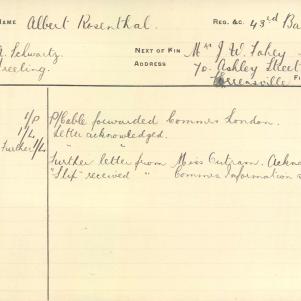 NAME Albert Rosenthal. REG. &C. 43rd Ba
A. Schwartz NEXT OF KIN Mrs J W. Fahey
Greeling. ADDRESS 70. Ashley Street
Greensville
1/P P/Cable forwarded Commrs London.
1/L. Letter acknowledged.
Further 1/L " "
Further letter from Miss Outram. Ackno
"Slip" received " Commrs Information